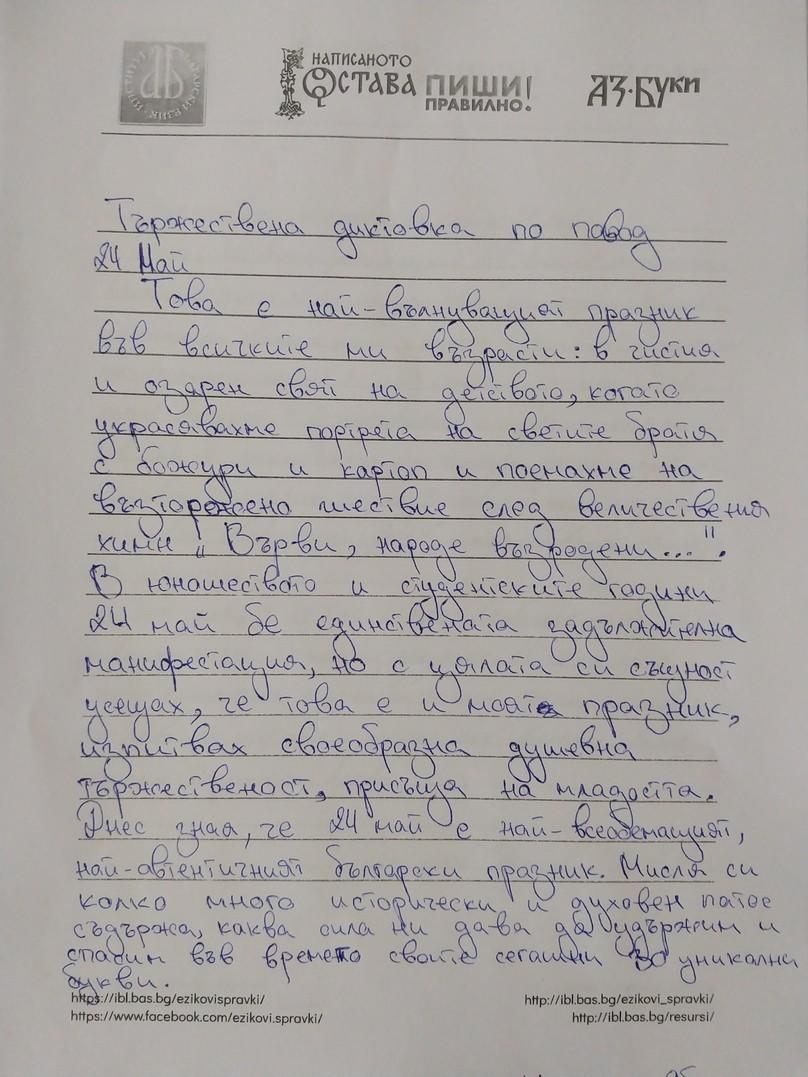 НАПИСАНОТО
ОСТАВА ПИШИ
ПРАВИЛНО!
АЗ·БУКИ
Тържествена диктовка по повод
24 Май
Това е най-вълнуващият празник
във всичките ми възрасти: в чистия
и озарен свят на детството, когато
украсявахме портрета на светите братя
с божури и картоп и поемахме на
възторжено шествие след величествения
химн „Върви, народе възродени...".
В юношеството и студентските години
24 май бе единствената задължителна
манифестация, но с цялата си същност
усещах, че това е и моят празник,
изпитвах своеобразна душевна
тържественост, присъща на младостта.
Днес зная, че 24 май е най-всеобемащият,
най-автентичният български празник. Мисля си
колко много исторически и духовен патос
съдържа, каква сила ни дава да удържим и
спасим във времето своите сегашни 30 уникални
букви.
https://ibl.bas.bg/ezikovispravki/
http://ibl.bas.bg/ezikovi_spravki/
https://www.facebook.com/ezikovi.spravki/
http://ibl.bas.bg/resursi/